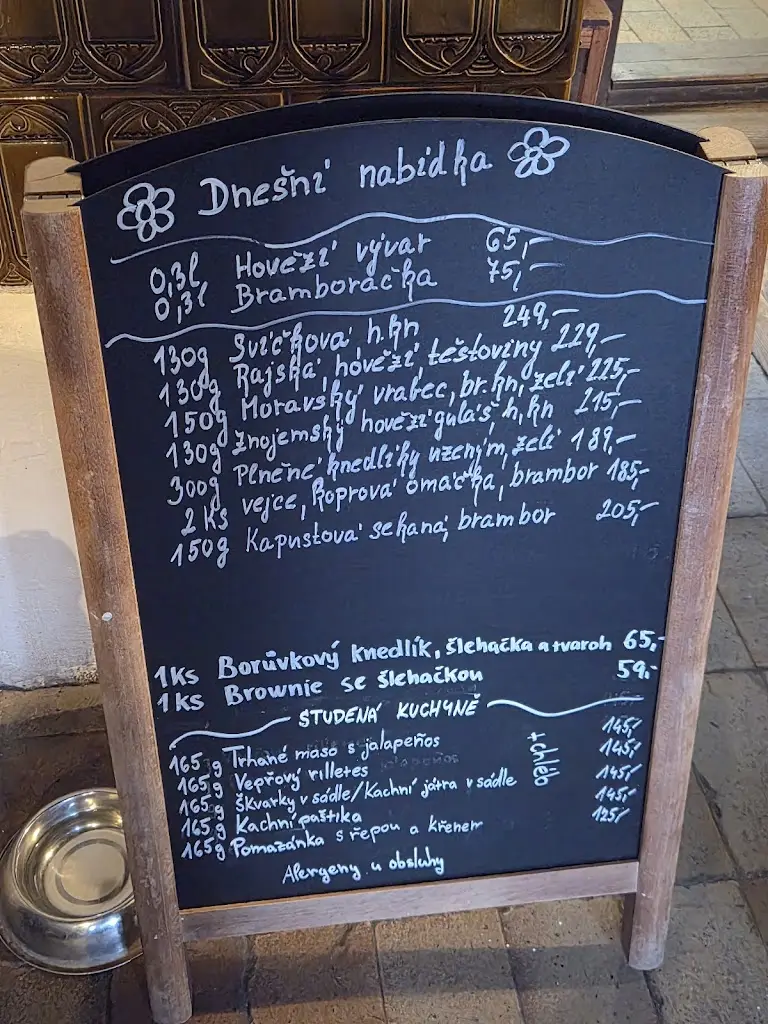 Dnešní nabídka
0,3l Hovězí vývar 65,-
0,3l Bramboračka 75,-
130g Svíčková h.kn 249,-
130g Rajská, hovězí, těstoviny 229,-
150g Moravský vrabec, br.kn, zelí 225,-
130g Znojemský hovězí guláš h,kn 215,-
300g Plněné knedlíky uzeným, zelí 189,-
2 ks vejce, koprová omáčka, brambor 185,-
150g Kapustová sekaná, brambor 205,-
1ks Borůvkový knedlík, šlehačka a tvaroh 65,-
1ks Brownie se šlehačkou 59,-
STUDENÁ KUCHYNĚ
165g Trhané maso s jalapeños 145,-
165g Vepřový rilletes 145,-
165g Škvarky v sádle/Kachní játra v sádle 145,-
165g Kachní paštika 145,-
165g Pomazánka s řepou a křenem 125,-
+ chléb
Alergeny u obsluhy